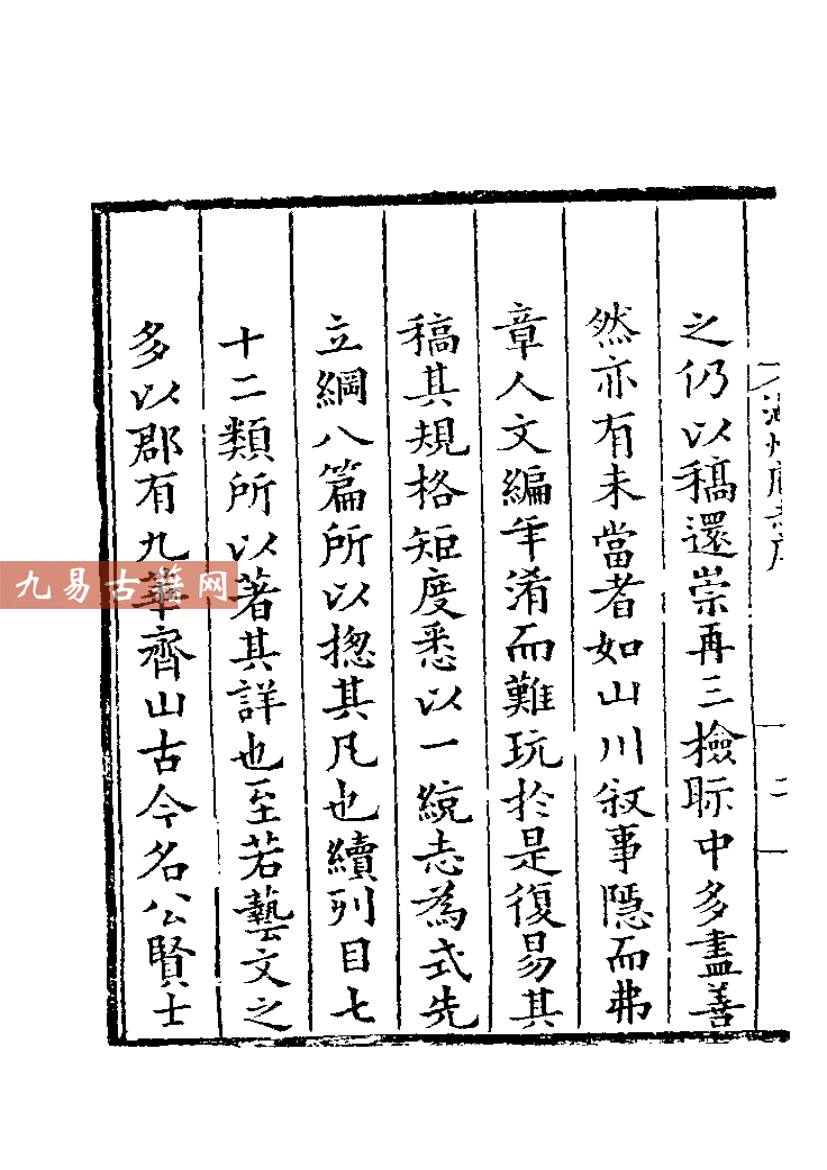 之仍以稿還崇再三檢眎中多盡善
然亦有未當者如山川叙事隱而弗
章人文編年淆而難玩於是復易其
稿其規格矩度悉以一統志為式先
立綱八篇所以揔其凡也續列目七
十二類所以著其詳也至若藝文之
多以郡有九華齊山古今名公賢士
二
九易古籍网